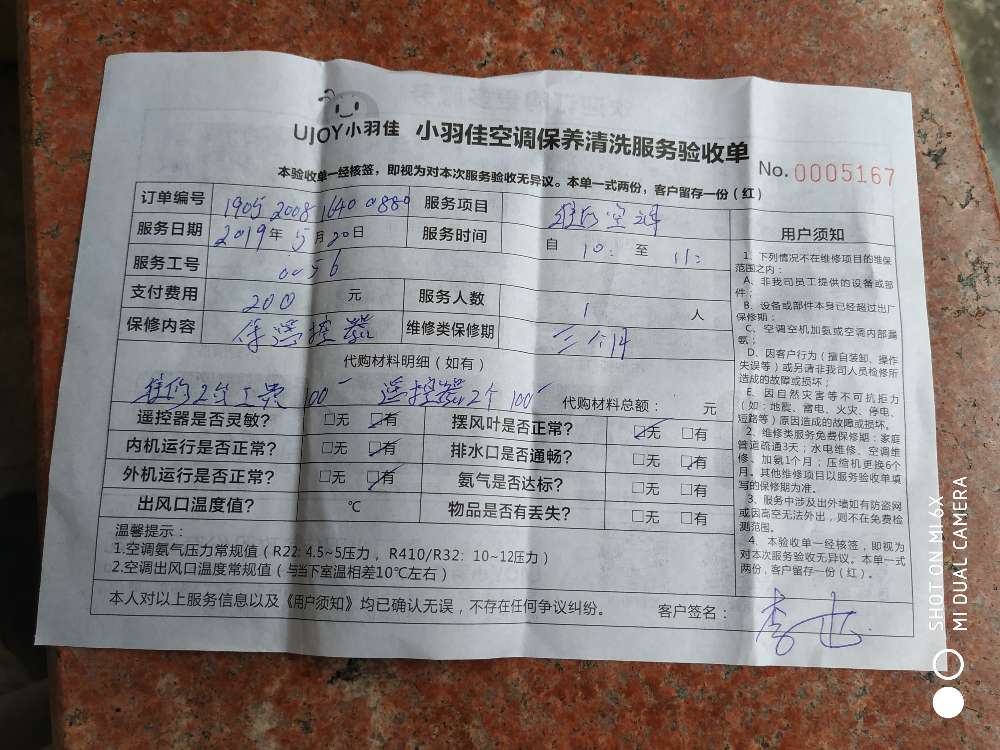 UJOY小羽佳 小羽佳空调保养清洗服务验收单
No. 0005167
本验收单一经核签，即视为对本次服务验收无异议。本单一式两份，客户留存一份（红）
订单编号 1905 2008 1640 0880 服务项目 维修空调
服务日期 2019年5月20日 服务时间 自 10: 至 11:
服务工号 0056
支付费用 200 元 服务人数 1 人
保修内容 保遥控器 维修类保修期 三个月
代购材料明细（如有）
维修2台工费100 遥控器2个100 代购材料总额： 元
遥控器是否灵敏? □无 ☑有 摆风叶是否正常? ☑无 □有
内机运行是否正常? □无 ☑有 排水口是否通畅? □无 ☑有
外机运行是否正常? □无 ☑有 氨气是否达标? □无 □有
出风口温度值? ℃ 物品是否有丢失? □无 □有
温馨提示：
1.空调氨气压力常规值（R22: 4.5~5压力，R410/R32: 10~12压力）
2.空调出风口温度常规值（与当下室温相差10℃左右）
本人对以上服务信息以及《用户须知》均已确认无误，不存在任何争议纠纷。 客户签名：
用户须知
1、下列情况不在维修项目的维保
范围之内：
A、非我司员工提供的设备或部
件；
B、设备或部件本身已经超过出厂
保修期；
C、空调空机加氨或空调内部漏
氨；
D、因客户行为（擅自装卸、操作
失误等）或另请非我司人员检修所
造成的故障或损坏；
E、因自然灾害等不可抗拒力
（如：地震、雷电、火灾、停电、
短路等）原因造成的故障或损坏。
2、维修类服务免费保修期：家庭
管道疏通3天；水电维修、空调维
修、加氨1个月；压缩机更换6个
月。其他维修项目以服务验收单填
写的保修期为准。
3、服务中涉及出外墙如有防盗网
或因高空无法外出，则不在免费检
测范围。
4、本验收单一经核签，即视为
对本次服务验收无异议。本单一式
两份，客户留存一份（红）。
SHOT ON MI 6X
MI DUAL CAMERA